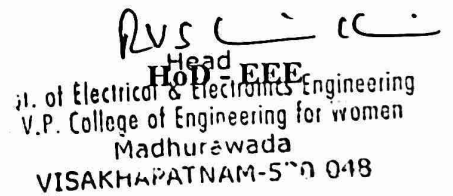 RVS
Head
HoD - EEE
of Electrical & Electronics Engineering
V.P. College of Engineering for Women
Madhurawada
VISAKHAPATNAM-530 048